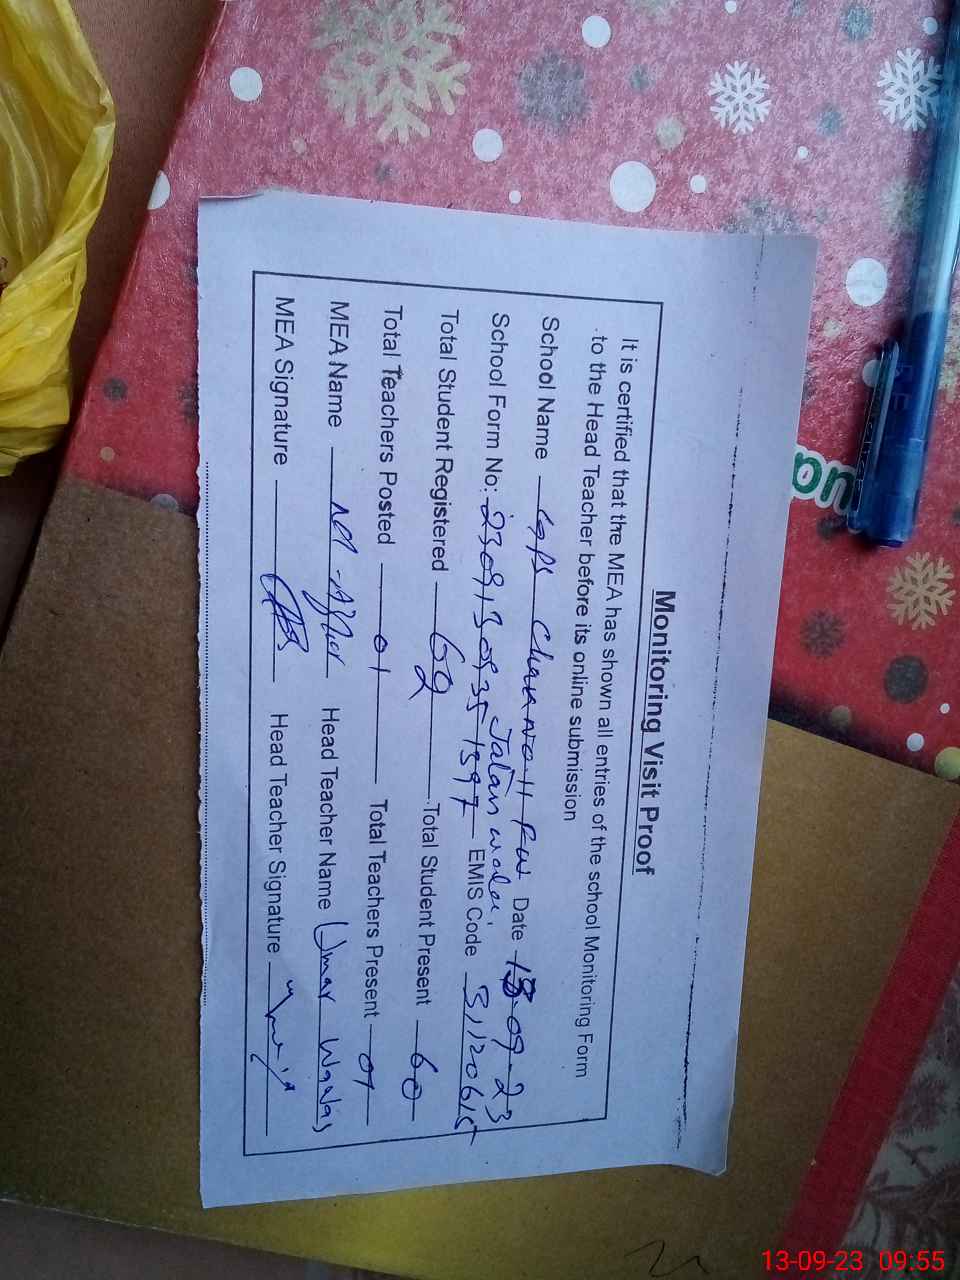 Monitoring Visit Proof
It is certified that the MEA has shown all entries of the school Monitoring Form
to the Head Teacher before its online submission
School Name GPS Chak No 11 FW Date 13-09-23
Jatan wala
School Form No: EMIS Code 31120615
Total Student Registered 62 Total Student Present 60
Total Teachers Posted 01 Total Teachers Present 01
MEA Name Head Teacher Name Umar Waqas
MEA Signature Head Teacher Signature
on
13-09-23 09:55